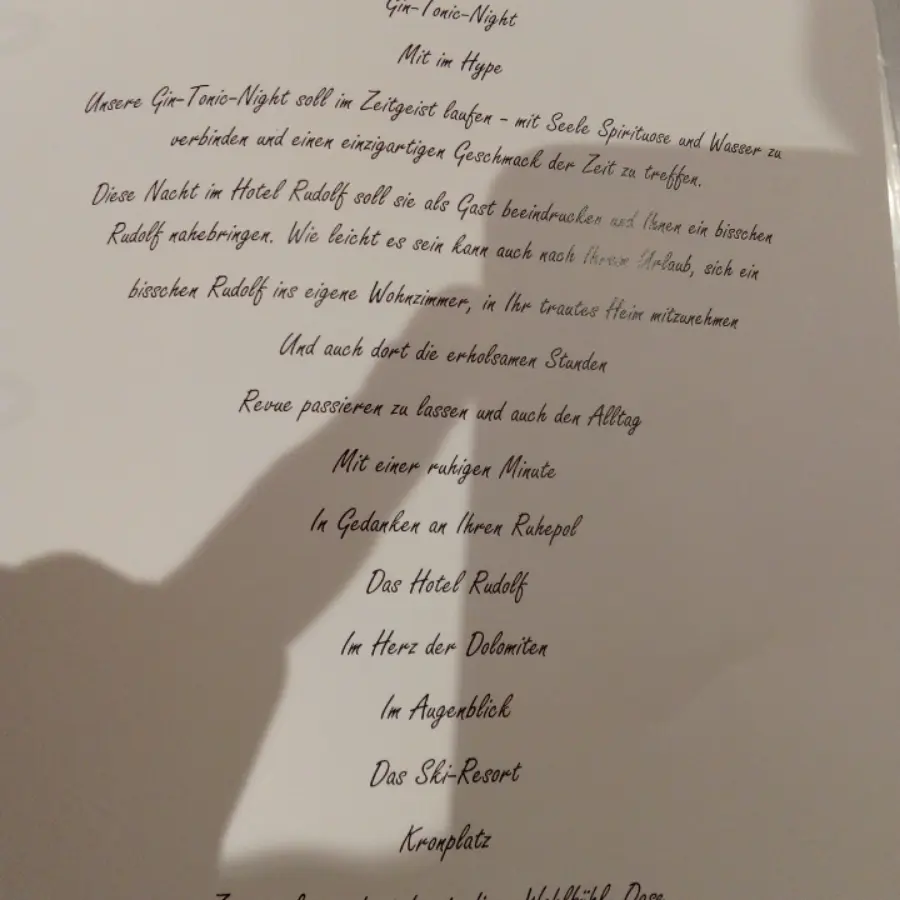 Gin-Tonic-Night
Mit im Hype
Unsere Gin-Tonic-Night soll im Zeitgeist laufen - mit Seele Spirituose und Wasser zu
verbinden und einen einzigartigen Geschmack der Zeit zu treffen.
Diese Nacht im Hotel Rudolf soll sie als Gast beeindrucken und Ihnen ein bisschen
Rudolf nahebringen. Wie leicht es sein kann auch nach Ihrem Urlaub, sich ein
bisschen Rudolf ins eigene Wohnzimmer, in Ihr trautes Heim mitzunehmen
Und auch dort die erholsamen Stunden
Revue passieren zu lassen und auch den Alltag
Mit einer ruhigen Minute
In Gedanken an Ihren Ruhepol
Das Hotel Rudolf
Im Herz der Dolomiten
Im Augenblick
Das Ski-Resort
Kronplatz